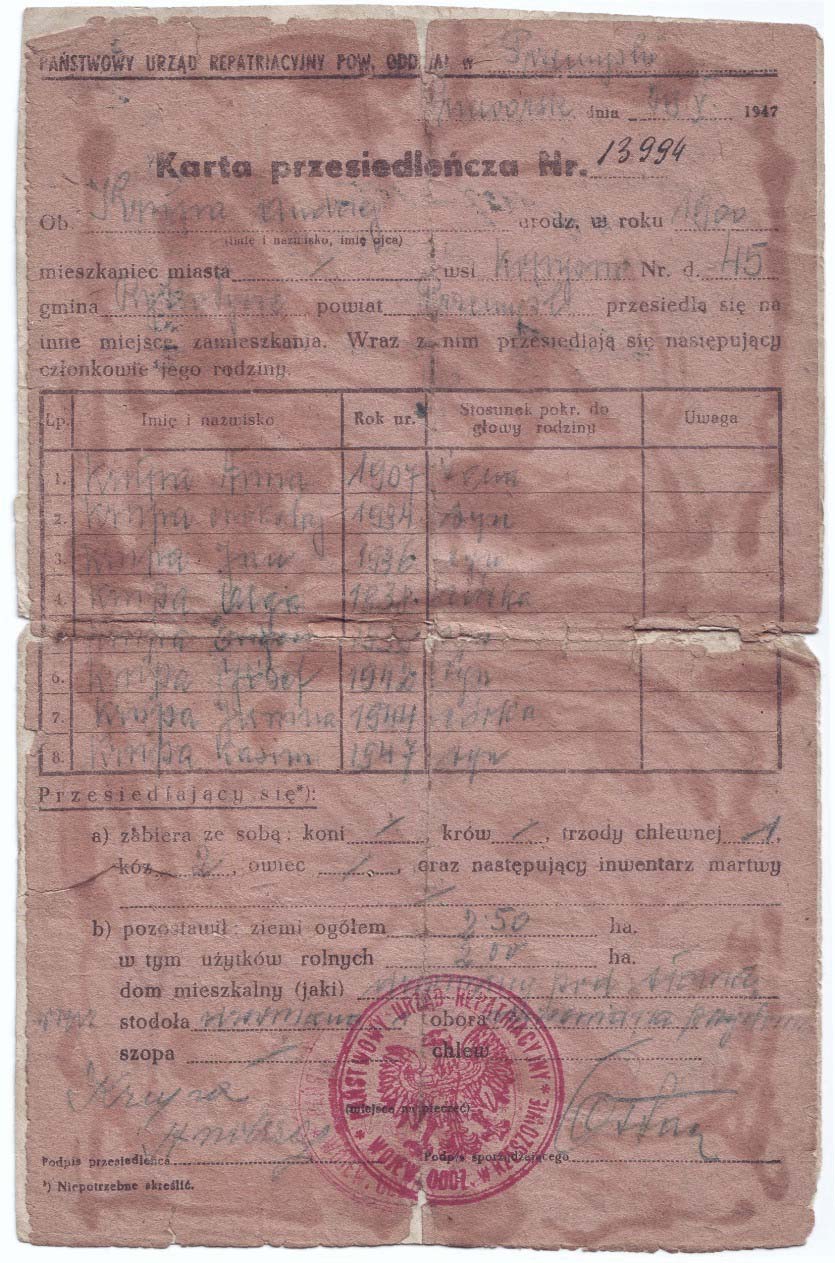 PAŃSTWOWY URZĄD REPATRIACYJNY POW. ODDZIAŁ w Przemyślu
dnia 10 V 1947
Karta przesiedleńcza Nr. 13994
Ob. Krupa Andrzej urodz. w roku 1900
(imię i nazwisko, imię ojca)
mieszkaniec miasta / wsi Nr. d. 45
gmina powiat Przemyśl przesiedla się na
inne miejsce zamieszkania. Wraz z nim przesiedlają się następujący
członkowie jego rodziny.
Lp. Imię i nazwisko Rok ur. Stosunek pokr. do głowy rodziny Uwaga
1. Krupa Anna 1907 żona
2. Krupa Mikołaj 1934 syn
3. Krupa Jan 1936 syn
4. Krupa Olga córka
Krupa syn
6. Krupa Józef 1942 syn
7. Krupa Janina 1944 córka
8. Krupa Kasim 1947 syn
Przesiedlający się*):
a) zabiera ze sobą: koni /, krów /, trzody chlewnej 1,
kóz 2, owiec /, oraz następujący inwentarz martwy
/
b) pozostawił: ziemi ogółem 2.50 ha.
w tym użytków rolnych 2.00 ha.
dom mieszkalny (jaki) drewniany pod słomą
stodoła drewniana obora drewniana
szopa / chlew
Krupa
Andrzej
(miejsce na pieczęć)
PAŃSTWOWY URZĄD REPATRIACYJNY * WOJEW. ODDZ. W RZESZOWIE *
Podpis przesiedleńca Podpis sporządzającego
*) Niepotrzebne skreślić.